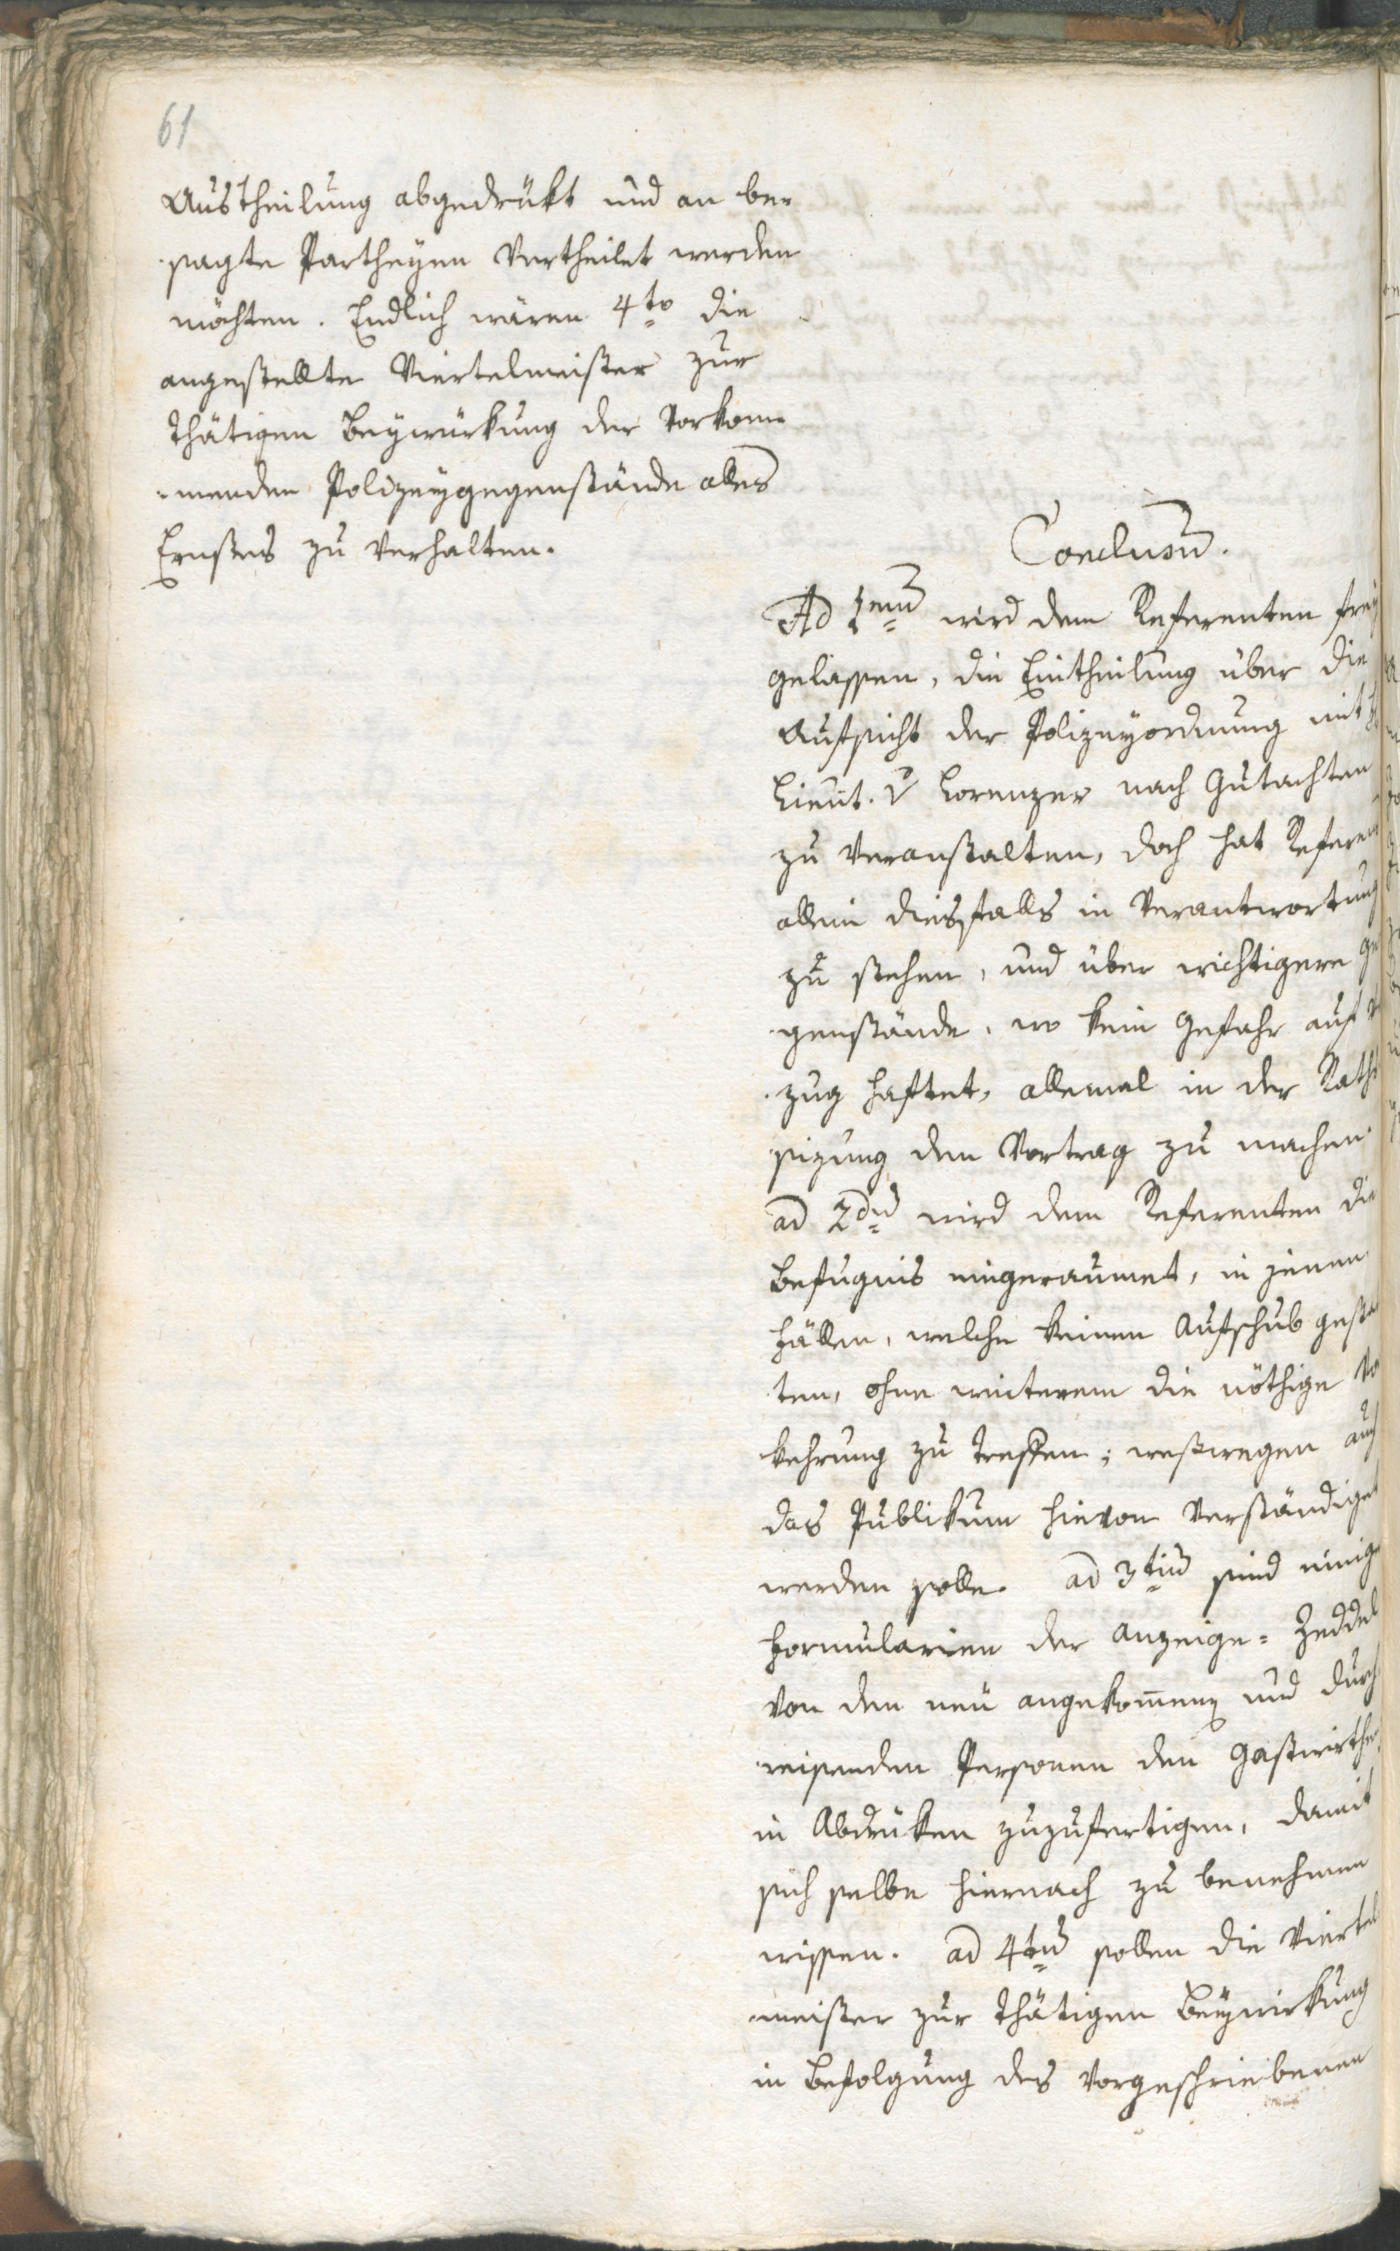 61
Austheilung abgedrükt und an be-
sagte Partheyen Vertheilet werden
möchten. Endlich wären 4to die
angestellte Viertelmeister zur
thätigen Beywürkung der Vorkom-
menden Polizeygegenstände alles
Ernstes zu Verhalten.
Conclusum.
Ad 1mum wird dem Referenten frey
gelassen, die Eintheilung über die
Aufsicht der Polizeyordnung mit
Lieut. v Lorenzer nach Gutachten
zu Veranstalten, doch hat Referen
allein diesfalls in Verantwortung
zu stehen, und über wichtigere Ge
genstände, wo kein Gefahr auf
zug haftet, allemal in der Raths
sizung den Vortrag zu machen.
ad 2dum wird dem Referenten die
Befugnis eingeraumet, in jenen
Fällen, welche keinen Aufschub gesta
ten, ohne weiterem die nöthige Vo
kehrung zu treffen; westwegen auch
das Publikum hievon Verständiget
werden solle. ad 3tium sind einige
Formularien der Anzeige-Zeddel
Von den neü angekommenen und durch
reisenden Personen den Gastwirthen
in Abdrüken zuzufertigen, damit
sich selbe hiernach zu benehmen
wissen. ad 4tum sollen die Viertel
meister zur thätigen Beywirkung
in Befolgung des Vorgeschriebenen